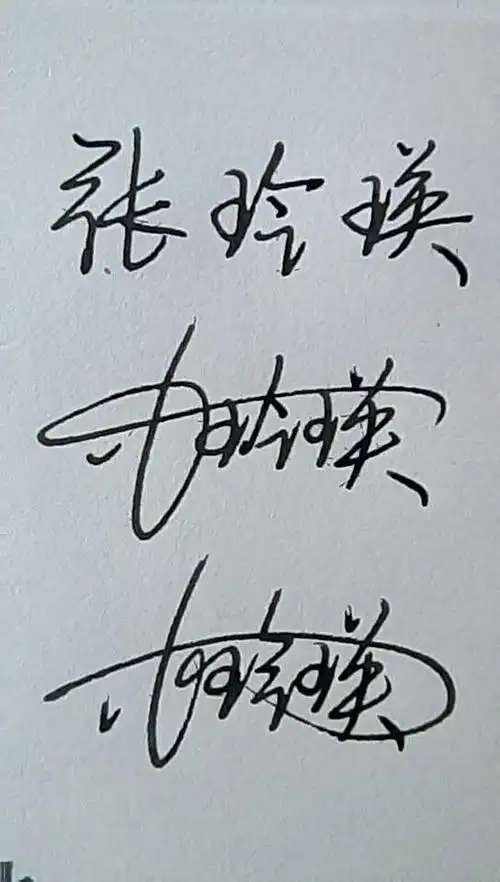 张玲瑛
张玲瑛
张玲瑛